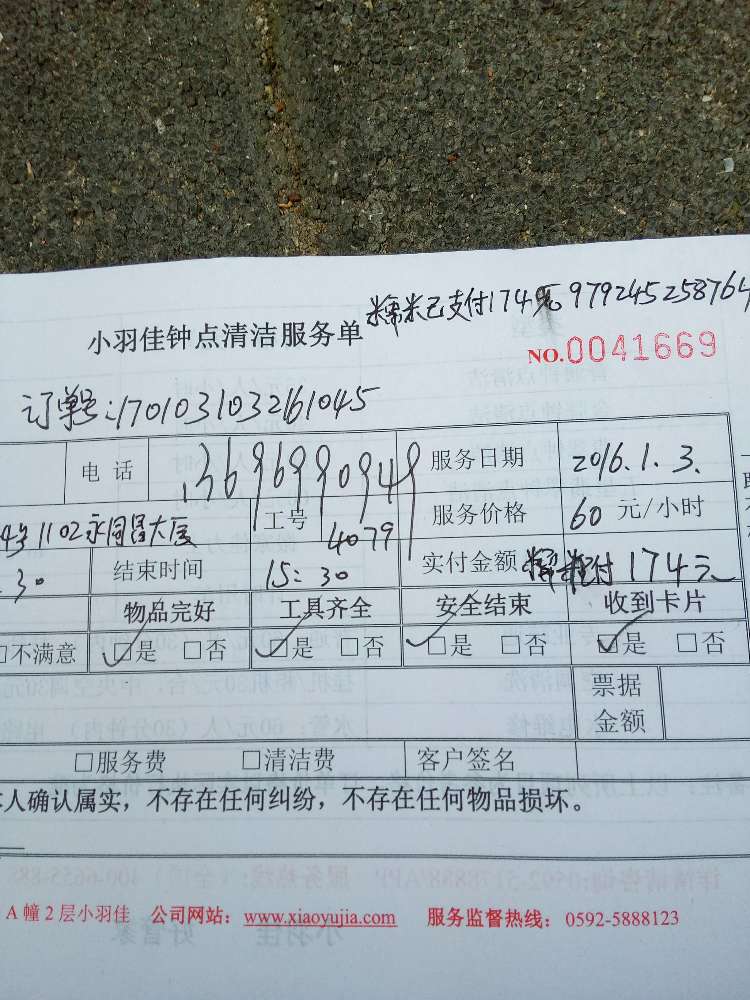 糯米已支付174元979245258764
小羽佳钟点清洁服务单
NO.0041669
订单号:1701031032161045
电话 13696990949 服务日期 2016.1.3.
1102永同昌大厦 工号 4079 服务价格 60元/小时
.30 结束时间 15:30 实付金额 糯米付174元
物品完好 工具齐全 安全结束 收到卡片
□不满意 ☑是 □否 ☑是 □否 ☑是 □否 ☑是 □否
票据金额
□服务费 □清洁费 客户签名
人确认属实，不存在任何纠纷，不存在任何物品损坏。
A幢2层小羽佳 公司网站：www.xiaoyujia.com 服务监督热线：0592-5888123